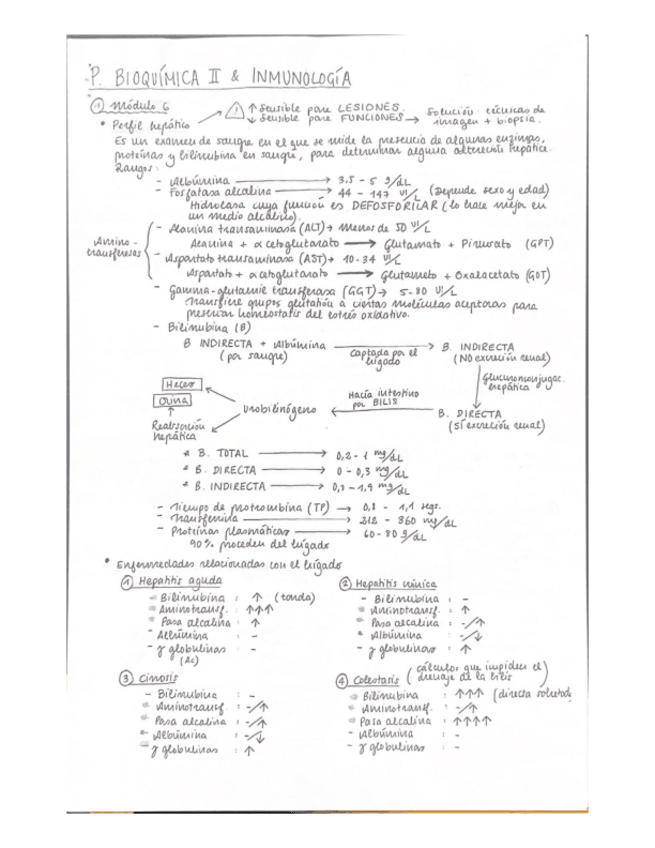 P. BIOQUÍMICA II & INMUNOLOGÍA
① Módulo 6
! ↑ sensible para LESIONES.
↓ sensible para FUNCIONES → Solución: técnicas de imagen + biopsia.
• Perfil hepático
Es un examen de sangre en el que se mide la presencia de algunas enzimas,
proteínas y bilirrubina en sangre, para determinar alguna alteración hepática.
Rangos:
- Albúmina → 3,5 - 5 g/dL
- Fosfatasa alcalina → 44 - 147 UI/L (Depende sexo y edad)
Hidrolasa cuya función es DEFOSFORILAR (lo hace mejor en
un medio alcalino).
Amino-transferasas
- Alanina transaminasa (ALT) → Menos de 50 UI/L
Alanina + α cetoglutarato → Glutamato + Piruvato (GPT)
- Aspartato transaminasa (AST) → 10-34 UI/L
Aspartato + α cetoglutarato → Glutamato + Oxalacetato (GOT)
- Gamma-glutamic transferasa (GGT) → 5-80 UI/L
Transfiere grupos glutatión a ciertas moléculas aceptoras para
preservar homeostasis del estrés oxidativo.
- Bilirrubina (B)
B INDIRECTA + Albúmina (por sangre) → Captada por el hígado → B. INDIRECTA (NO excreción renal)
Glucuronoconjugac. hepática
B. DIRECTA (SÍ excreción renal)
Hacía intestino por BILIS
Urobilinógeno
Heces
Orina
Reabsorción hepática
* B. TOTAL → 0,2 - 1 mg/dL
* B. DIRECTA → 0 - 0,3 mg/dL
* B. INDIRECTA → mg/dL
- Tiempo de protrombina (TP) → 0,8 - 1,1 segs.
- Transferrina → 212 - 360 mg/dL
- Proteínas plasmáticas → 60-80 g/dL
90% proceden del hígado
• Enfermedades relacionadas con el hígado
① Hepatitis aguda
- Bilirrubina : ↑ (tardía)
- Aminotransf. : ↑↑↑
- Fosa alcalina : ↑
- Albúmina : -
- γ globulinas : -
(Ac)
② Hepatitis crónica
- Bilirrubina : -
- Aminotransf. : ↑
- Fosa alcalina : -/↑
- Albúmina : -/↓
- γ globulinas : ↑
③ Cirrosis
- Bilirrubina : -
- Aminotransf. : -/↑
- Fosa alcalina : -/↑
- Albúmina : -/↓
- γ globulinas : ↑
④ Colestasis (cálculos que impiden el drenaje de la bilis)
- Bilirrubina : ↑↑↑ (directa
- Aminotransf. : -/↑
- Fosa alcalina : ↑↑↑↑
- Albúmina : -
- γ globulinas : -